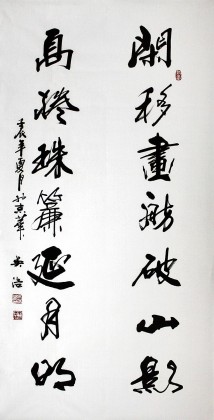 閑移畫舫破山影
高捲珠簾延月明
壬辰年夏月於京華